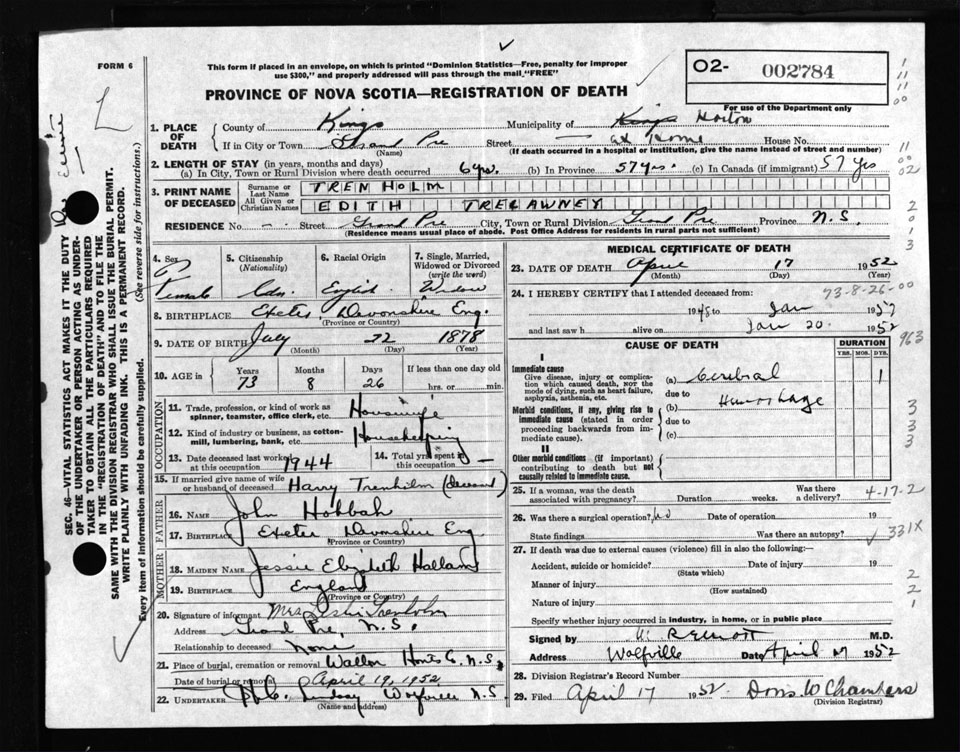 FORM 6
This form if placed in an envelope, on which is printed "Dominion Statistics—Free, penalty for improper
use $300," and properly addressed will pass through the mail "FREE"
PROVINCE OF NOVA SCOTIA—REGISTRATION OF DEATH
O2- 002784
For use of the Department only
SEC. 46—VITAL STATISTICS ACT MAKES IT THE DUTY
OF THE UNDERTAKER OR PERSON ACTING AS UNDER-
TAKER TO OBTAIN ALL THE PARTICULARS REQUIRED
IN THE "REGISTRATION OF DEATH" AND TO FILE THE
SAME WITH THE DIVISION REGISTRAR WHO SHALL ISSUE THE BURIAL PERMIT.
WRITE PLAINLY WITH UNFADING INK. THIS IS A PERMANENT RECORD.
Every item of information should be carefully supplied. (See reverse side for instructions.)
1. PLACE OF DEATH County of Kings Municipality of Kings Horton
If in City or Town Grand Pre (Name) Street at Home House No.
(If death occurred in a hospital or institution, give the name instead of street and number)
2. LENGTH OF STAY (in years, months and days)
(a) In City, Town or Rural Division where death occurred 6 yrs. (b) In Province 57 yrs. (c) In Canada (if immigrant) 57 yrs
3. PRINT NAME OF DECEASED Surname or Last Name TRENHOLM
All Given or Christian Names EDITH TRELAWNEY
RESIDENCE No. - Street Grand Pre City, Town or Rural Division Grand Pre Province N.S.
(Residence means usual place of abode. Post Office Address for residents in rural parts not sufficient)
4. Sex Female
5. Citizenship (Nationality) Cdn.
6. Racial Origin English
7. Single, Married, Widowed or Divorced (write the word) Widow
8. BIRTHPLACE Exeter, Devonshire Eng.
(Province or Country)
9. DATE OF BIRTH July 22 1878
(Month) (Day) (Year)
10. AGE in Years 73 Months 8 Days 26 If less than one day old hrs. or min.
OCCUPATION
11. Trade, profession, or kind of work as spinner, teamster, office clerk, etc. Housewife
12. Kind of industry or business, as cotton-mill, lumbering, bank, etc. Housekeeping
13. Date deceased last worked at this occupation 1944 14. Total yrs. spent in this occupation —
15. If married give name of wife or husband of deceased Harry Trenholm (deceased)
FATHER
16. NAME John Hobbah
17. BIRTHPLACE Exeter Devonshire Eng
(Province or Country)
MOTHER
18. MAIDEN NAME Jessie Elizabeth Hallam
19. BIRTHPLACE England
(Province or Country)
20. Signature of informant Mrs Trenholm
Address Grand Pre, N.S.
Relationship to deceased None
21. Place of burial, cremation or removal Wallace N.S.
Date of burial or removal April 19, 1952
22. UNDERTAKER Lindsay Wolfville N.S.
(Name and address)
MEDICAL CERTIFICATE OF DEATH
23. DATE OF DEATH April 17 1952
(Month) (Day) (Year)
24. I HEREBY CERTIFY that I attended deceased from: 73-8-26-00
1948 to Jan 1952
and last saw h alive on Jan 20 1952
963
CAUSE OF DEATH
DURATION
YRS. MOS. DYS.
I
Immediate cause
Give disease, injury or complication which caused death, NOT the mode of dying, such as heart failure, asphyxia, asthenia, etc.
(a) Cerebral 1
due to Hemorrhage
Morbid conditions, if any, giving rise to immediate cause (stated in order proceeding backwards from immediate cause).
(b)
due to
(c)
II
Other morbid conditions (if important) contributing to death but not causally related to immediate cause.
25. If a woman, was the death associated with pregnancy? Duration weeks. Was there a delivery? 4-17-2
26. Was there a surgical operation? no Date of operation 19
State findings Was there an autopsy? 331X
27. If death was due to external causes (violence) fill in also the following:—
Accident, suicide or homicide? Date of injury 19
(State which)
Manner of injury
(How sustained)
Nature of injury
Specify whether injury occurred in industry, in home, or in public place
Signed by M.D.
Address Wolfville Date April 17 1952
28. Division Registrar's Record Number
29. Filed April 17 1952 Doris W Chambers
(Division Registrar)